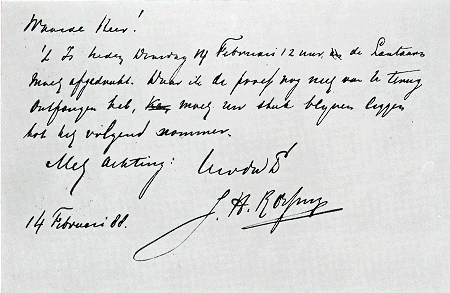 Waarde Heer!
't Is heden Dinsdag 14 Februari 12 uur, de Lantaarn
moet afgedrukt. Daar ik de proef nog niet van U terug
ontfangen heb, moet uw stuk blijven liggen
tot het volgend nommer.
Met Achting:
J. H. Rössing
14 Februari 88.